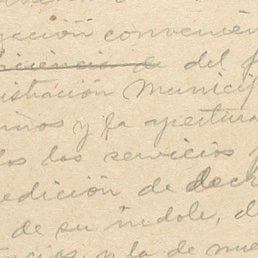 ección convenien
eficiencia a del f
istración Municip
inos y la apertura
los los servicios
edición de dech
de su índole, d
cios, y la de nue